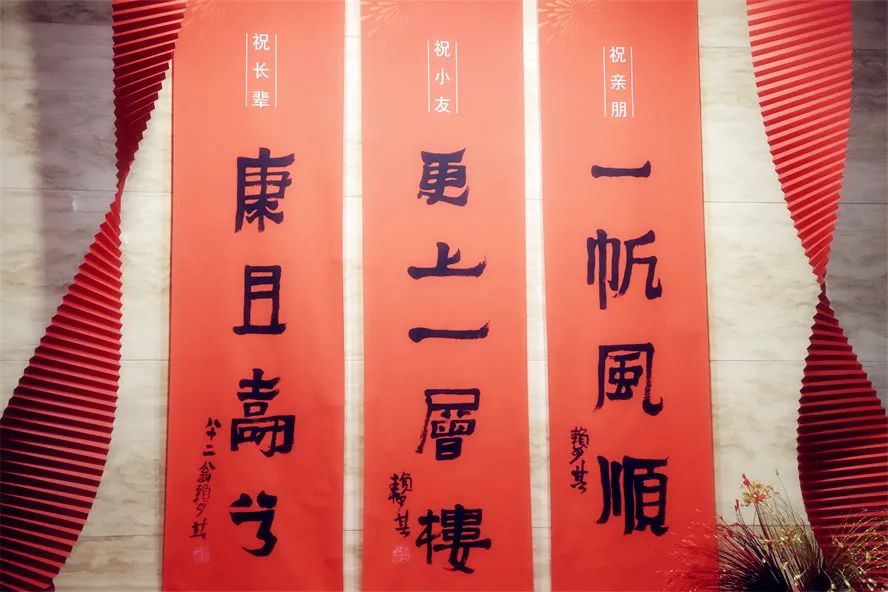 祝亲朋
一帆風順
賴少其
祝小友
更上一層樓
賴少其
祝长辈
康且壽兮
八十二翁賴少其